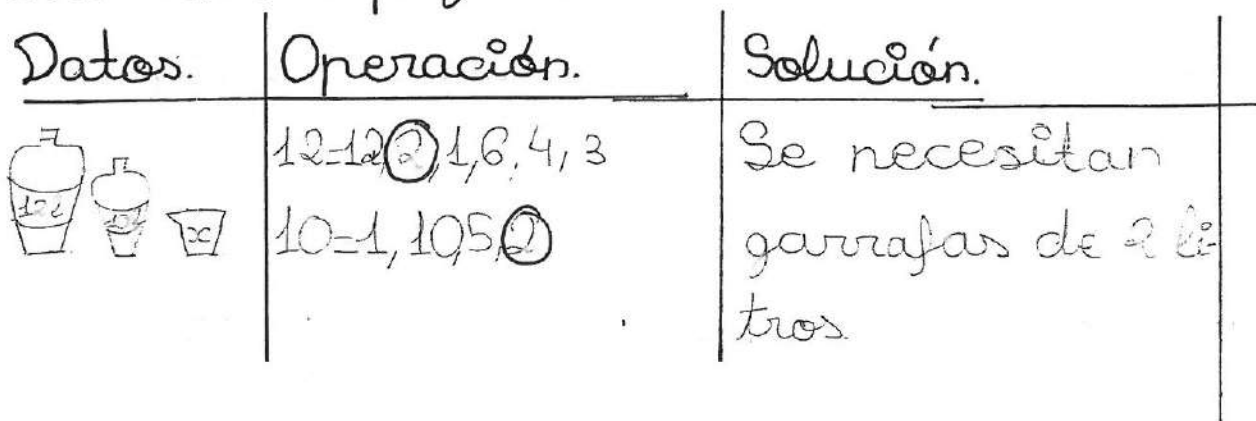 Datos.
Operación.
Solución.
12l
10l
x
12=12,2,1,6,4,3
10=1,10,5,2
Se necesitan
garrafas de 2 li-
tros